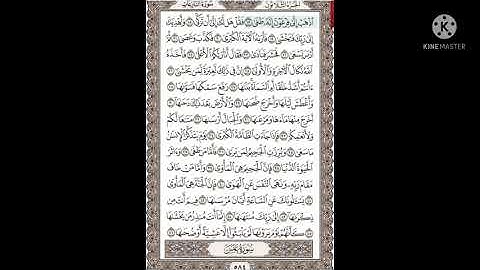 الجزء الثلاثون سورة النازعات
KINEMASTER
اذهب إلى فرعون إنه طغى ١٧ فقل هل لك إلى أن تزكى ١٨ وأهديك
إلى ربك فتخشى ١٩ فأراه الآية الكبرى ٢٠ فكذب وعصى ٢١ ثم
أدبر يسعى ٢٢ فحشر فنادى ٢٣ فقال أنا ربكم الأعلى ٢٤ فأخذه
الله نكال الآخرة والأولى ٢٥ إن في ذلك لعبرة لمن يخشى ٢٦
ءأنتم أشد خلقا أم السماء بناها ٢٧ رفع سمكها فسواها ٢٨
وأغطش ليلها وأخرج ضحاها ٢٩ والأرض بعد ذلك دحاها ٣٠
أخرج منها ماءها ومرعاها ٣١ والجبال أرساها ٣٢ متاعا لكم
ولأنعامكم ٣٣ فإذا جاءت الطامة الكبرى ٣٤ يوم يتذكر الإنسان
ما سعى ٣٥ وبرزت الجحيم لمن يرى ٣٦ فأما من طغى ٣٧ وءاثر
الحياة الدنيا ٣٨ فإن الجحيم هي المأوى ٣٩ وأما من خاف
مقام ربه ونهى النفس عن الهوى ٤٠ فإن الجنة هي المأوى ٤١
يسألونك عن الساعة أيان مرساها ٤٢ فيم أنت من
ذكراها ٤٣ إلى ربك منتهاها ٤٤ إنما أنت منذر من يخشاها
٤٥ كأنهم يوم يرونها لم يلبثوا إلا عشية أو ضحاها ٤٦
سورة عبس
٥٨٤